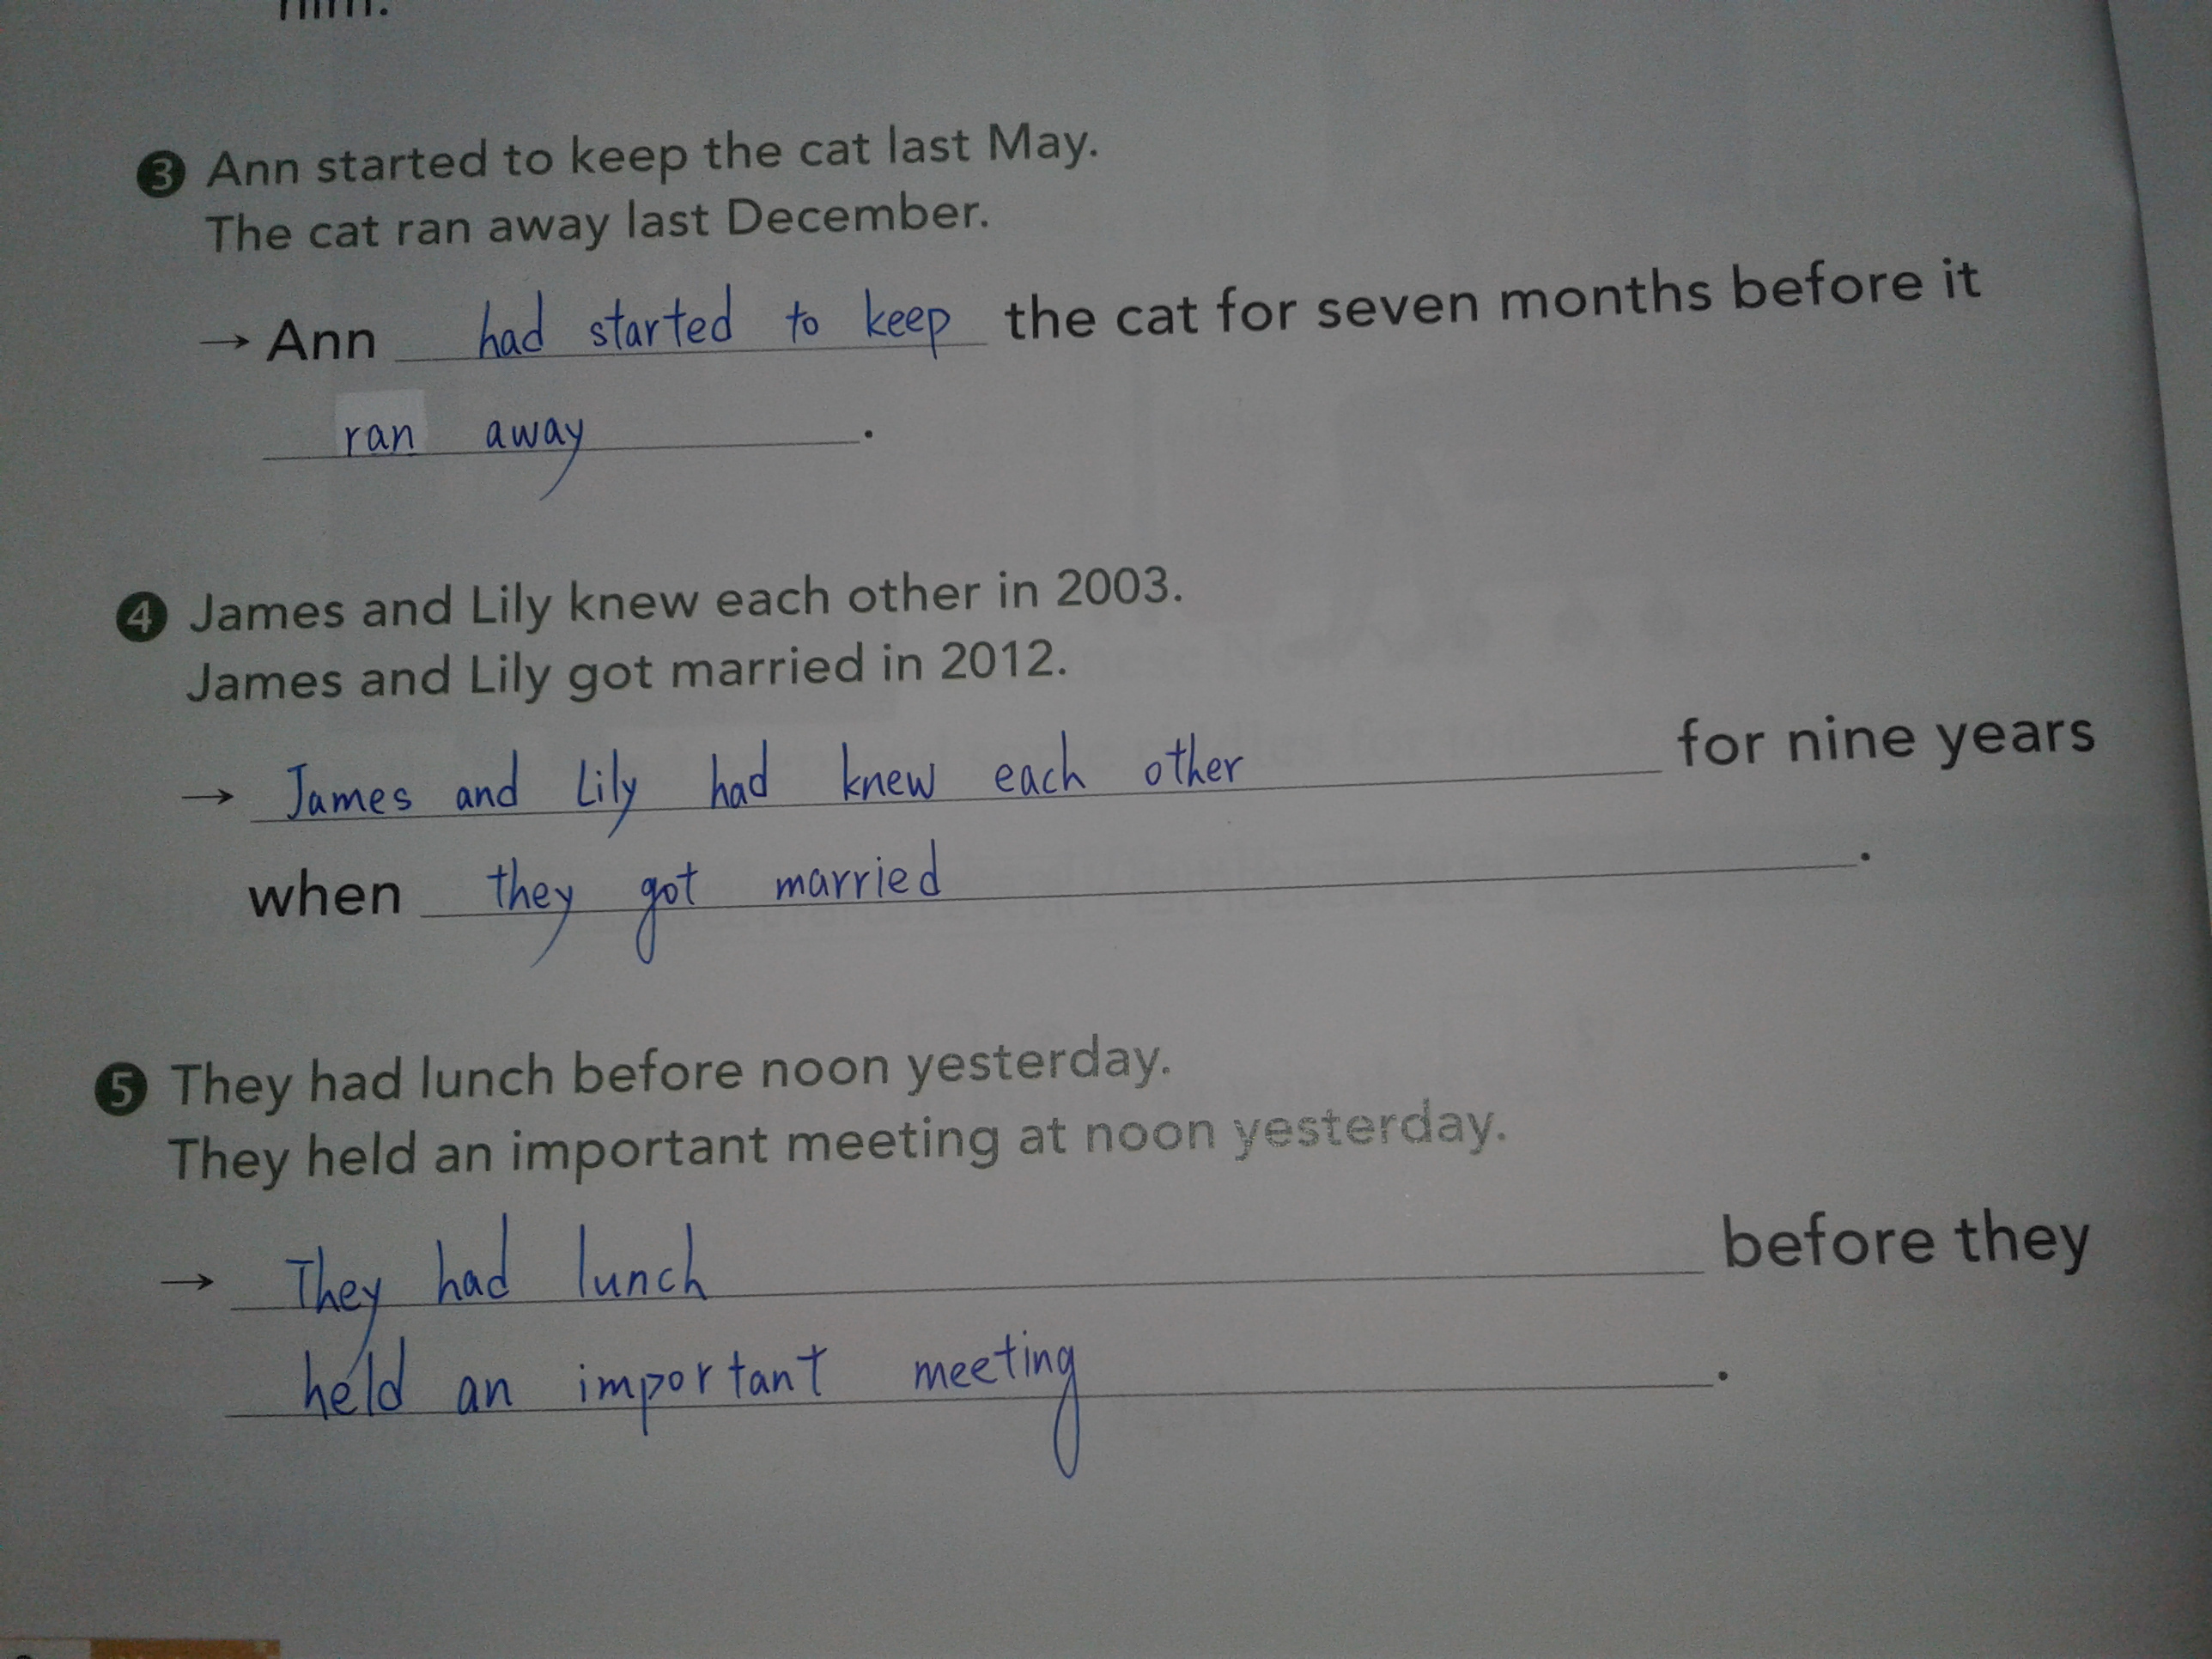 ③ Ann started to keep the cat last May.
The cat ran away last December.
→ Ann had started to keep the cat for seven months before it
ran away.
④ James and Lily knew each other in 2003.
James and Lily got married in 2012.
→ James and Lily had knew each other for nine years
when they got married.
⑤ They had lunch before noon yesterday.
They held an important meeting at noon yesterday.
→ They had lunch before they
held an important meeting.